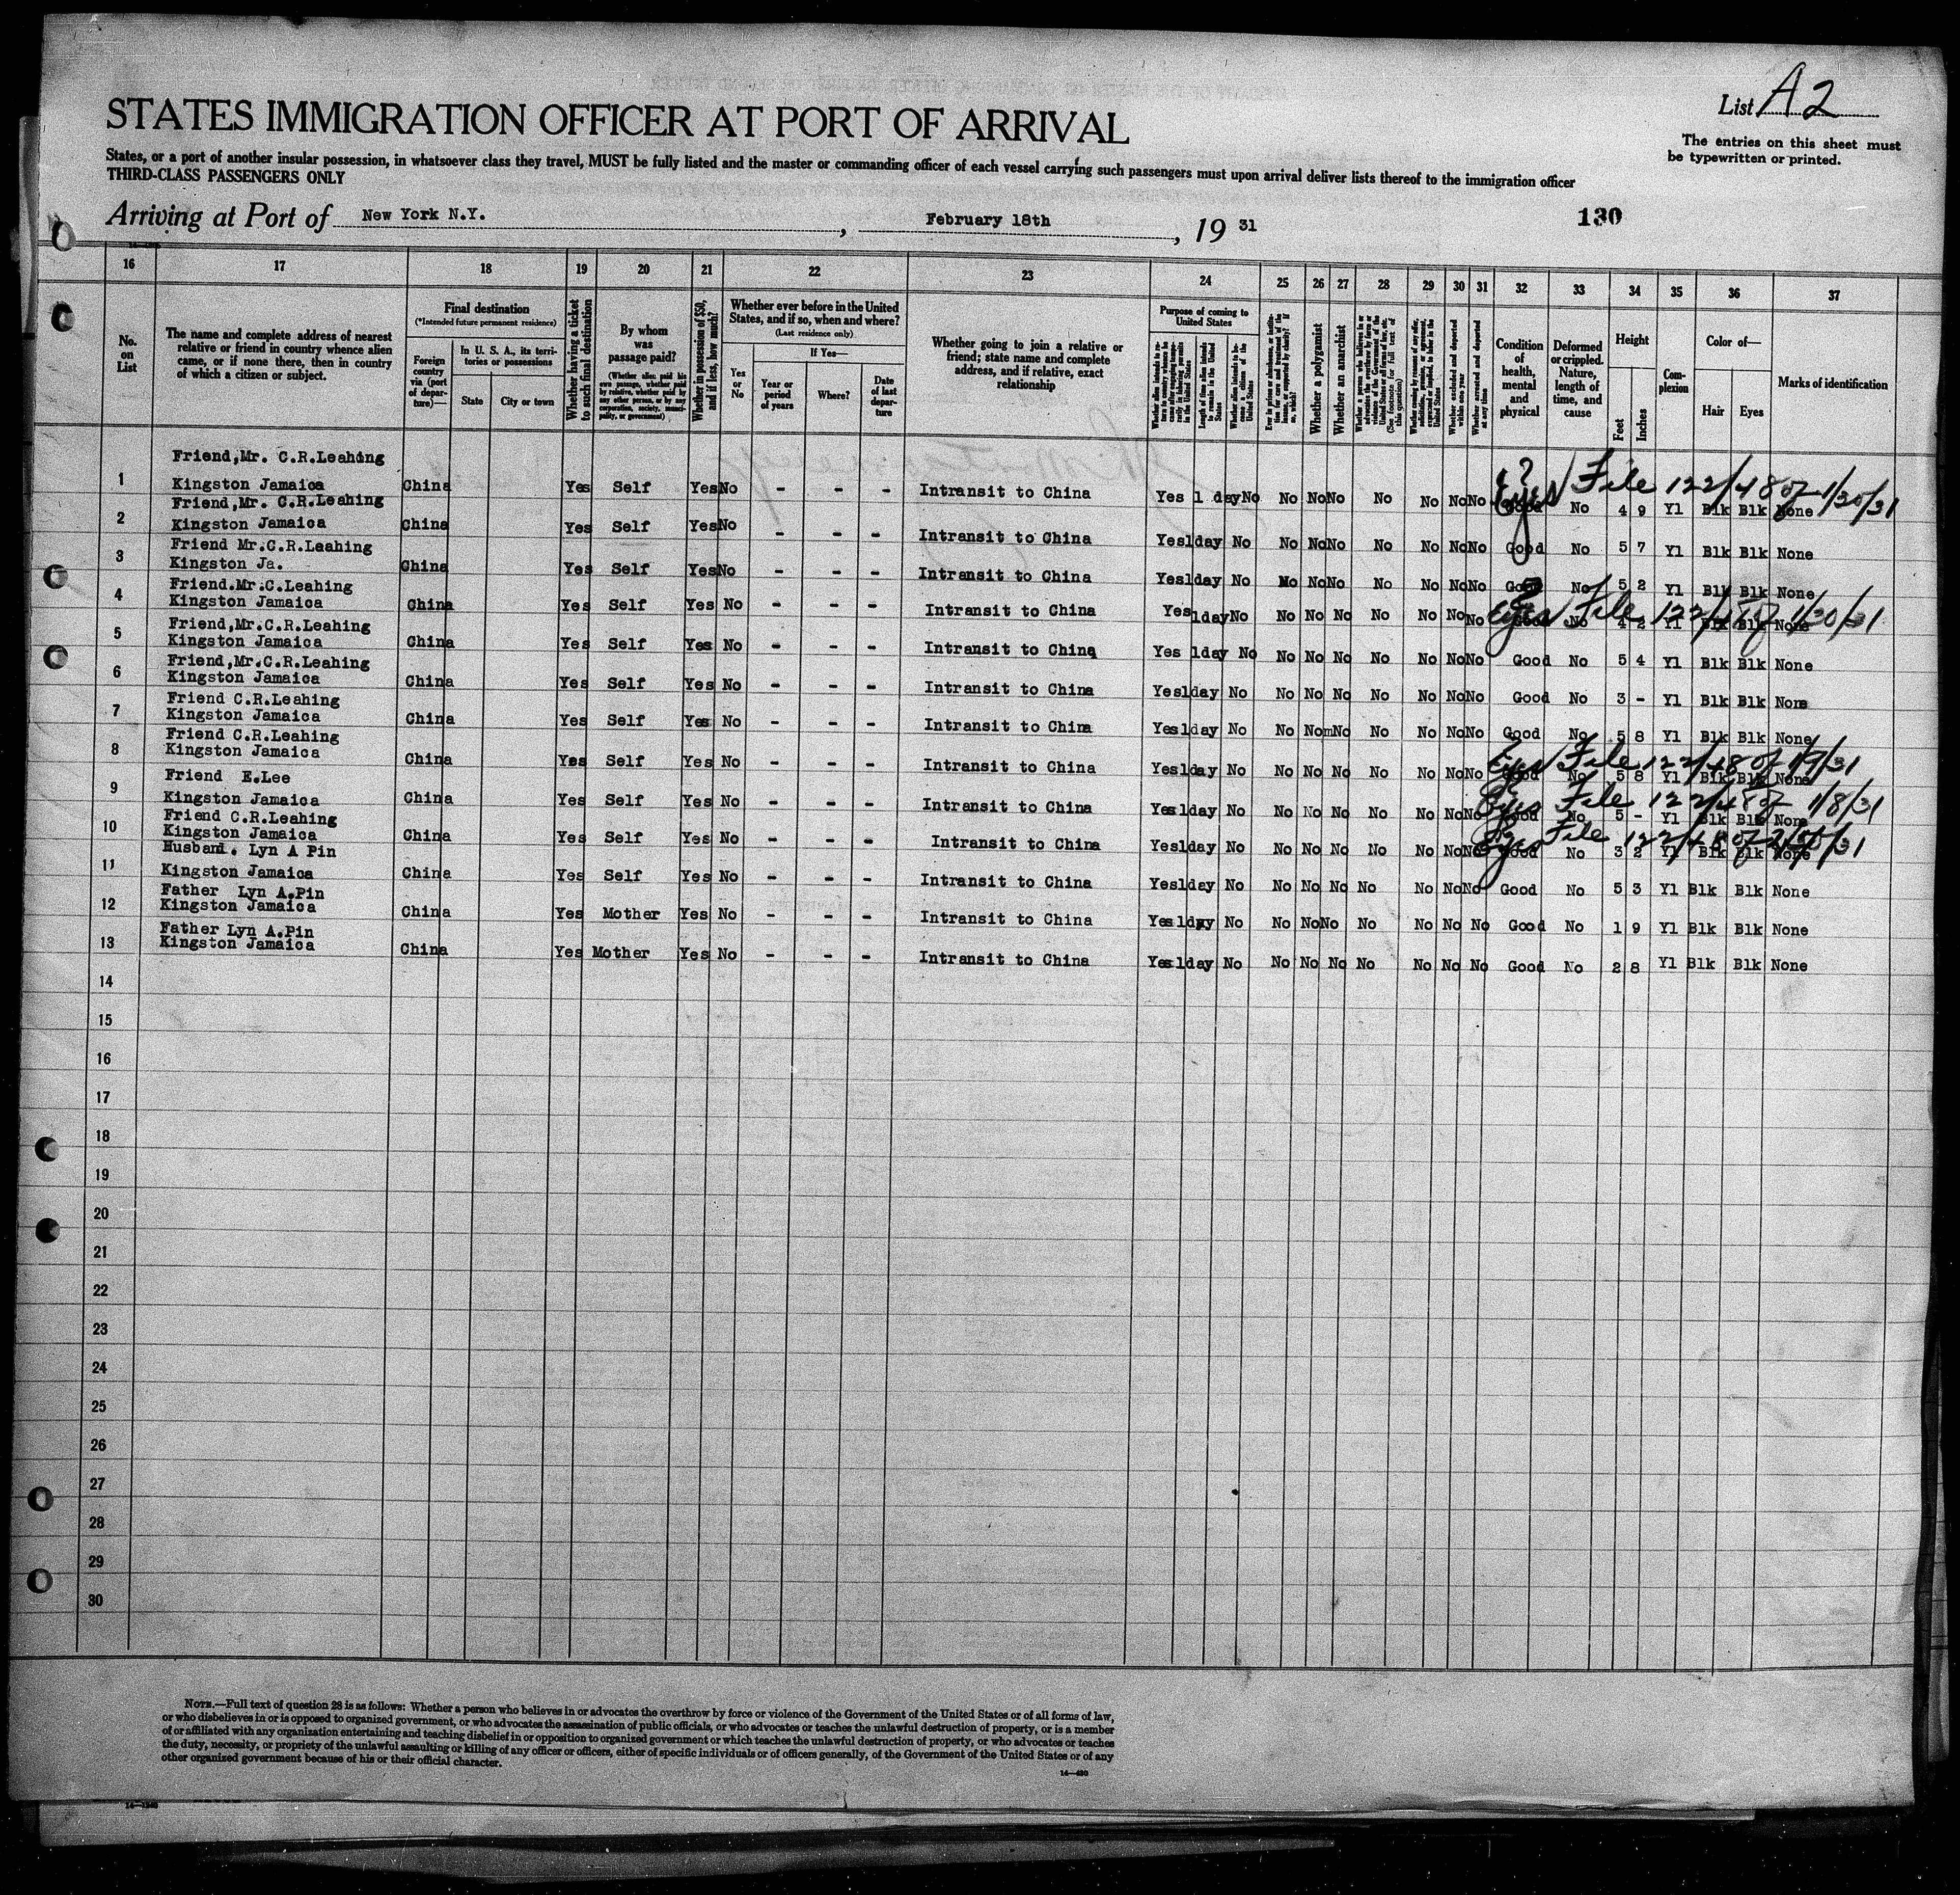 List A2
STATES IMMIGRATION OFFICER AT PORT OF ARRIVAL
The entries on this sheet must
be typewritten or printed.
States, or a port of another insular possession, in whatsoever class they travel, MUST be fully listed and the master or commanding officer of each vessel carrying such passengers must upon arrival deliver lists thereof to the immigration officer
THIRD-CLASS PASSENGERS ONLY
Arriving at Port of New York N.Y. , February 18th , 19 31
130
16 17 18 19 20 21 22 23 24 25 26 27 28 29 30 31 32 33 34 35 36 37
No. on List
The name and complete address of nearest relative or friend in country whence alien came, or if none there, then in country of which a citizen or subject.
Final destination
(*Intended future permanent residence)
Foreign country via (port of departure)—
In U. S. A., its territories or possessions
State
City or town
Whether having a ticket to such final destination
By whom was passage paid?
(Whether alien paid his own passage, whether paid by relative, whether paid by any other person, or by any corporation, society, municipality, or government)
Whether in possession of $50, and if less, how much?
Whether ever before in the United States, and if so, when and where?
(Last residence only)
Yes or No
If Yes—
Year or period of years
Where?
Date of last departure
Whether going to join a relative or friend; state name and complete address, and if relative, exact relationship
Purpose of coming to United States
Length of time alien intends to remain in the United States
Whether alien intends to become a citizen of the United States
Whether a polygamist
Whether an anarchist
Whether excluded and deported within one year
Whether arrested and deported at any time
Condition of health, mental and physical
Deformed or crippled. Nature, length of time, and cause
Height
Feet
Inches
Complexion
Color of—
Hair
Eyes
Marks of identification
Friend,Mr. C.R.Leahing
1 Kingston Jamaica China Yes Self Yes No - - - Intransit to China Yes 1 day No No No No No No No No Good No 4 9 Yl Blk Blk None
Eyes File 122/480 of 1/30/31
Friend,Mr. C.R.Leahing
2 Kingston Jamaica China Yes Self Yes No - - - Intransit to China Yes 1day No No No No No No No No Good No 5 7 Yl Blk Blk None
Friend Mr.C.R.Leahing
3 Kingston Ja. China Yes Self Yes No - - - Intransit to China Yes 1day No No No No No No No No Good No 5 2 Yl Blk Blk None
Friend.Mr.C.Leahing
4 Kingston Jamaica China Yes Self Yes No - - - Intransit to China Yes 1day No No No No No No No No Good No 4 2 Yl Blk Blk None
Eyes File 122/480 of 1/30/31
Friend,Mr.C.R.Leahing
5 Kingston Jamaica China Yes Self Yes No - - - Intransit to China Yes 1day No No No No No No No No Good No 5 4 Yl Blk Blk None
Friend,Mr.C.R.Leahing
6 Kingston Jamaica China Yes Self Yes No - - - Intransit to China Yes 1day No No No No No No No No Good No 3 - Yl Blk Blk None
Friend C.R.Leahing
7 Kingston Jamaica China Yes Self Yes No - - - Intransit to China Yes 1day No No Nom No No No No No Good No 5 8 Yl Blk Blk None
Friend C.R.Leahing
8 Kingston Jamaica China Yes Self Yes No - - - Intransit to China Yes 1day No No No No No No No No Good No 5 8 Yl Blk Blk None
Eyes File 122/480 of 1/9/31
Friend E.Lee
9 Kingston Jamaica China Yes Self Yes No - - - Intransit to China Yes 1day No No No No No No No No Good No 5 - Yl Blk Blk None
Eyes File 122/480 of 1/8/31
Friend C.R.Leahing
10 Kingston Jamaica China Yes Self Yes No - - - Intransit to China Yes 1day No No No No No No No No Good No 3 2 Yl Blk Blk None
Eyes File 122/480 of
Husband. Lyn A Pin
11 Kingston Jamaica China Yes Self Yes No - - - Intransit to China Yes 1day No No No No No No No No Good No 5 3 Yl Blk Blk None
Father Lyn A.Pin
12 Kingston Jamaica China Yes Mother Yes No - - - Intransit to China Yes 1day No No No No No No No No Good No 1 9 Yl Blk Blk None
Father Lyn A.Pin
13 Kingston Jamaica China Yes Mother Yes No - - - Intransit to China Yes 1day No No No No No No No No Good No 2 8 Yl Blk Blk None
14
15
16
17
18
19
20
21
22
23
24
25
26
27
28
29
30
NOTE.—Full text of question 28 is as follows: Whether a person who believes in or advocates the overthrow by force or violence of the Government of the United States or of all forms of law,
or who disbelieves in or is opposed to organized government, or who advocates the assassination of public officials, or who advocates or teaches the unlawful destruction of property, or is a member
of or affiliated with any organization entertaining and teaching disbelief in or opposition to organized government or which teaches the unlawful destruction of property, or who advocates or teaches
the duty, necessity, or propriety of the unlawful assaulting or killing of any officer or officers, either of specific individuals or of officers generally, of the Government of the United States or of any
other organized government because of his or their official character.
14—430